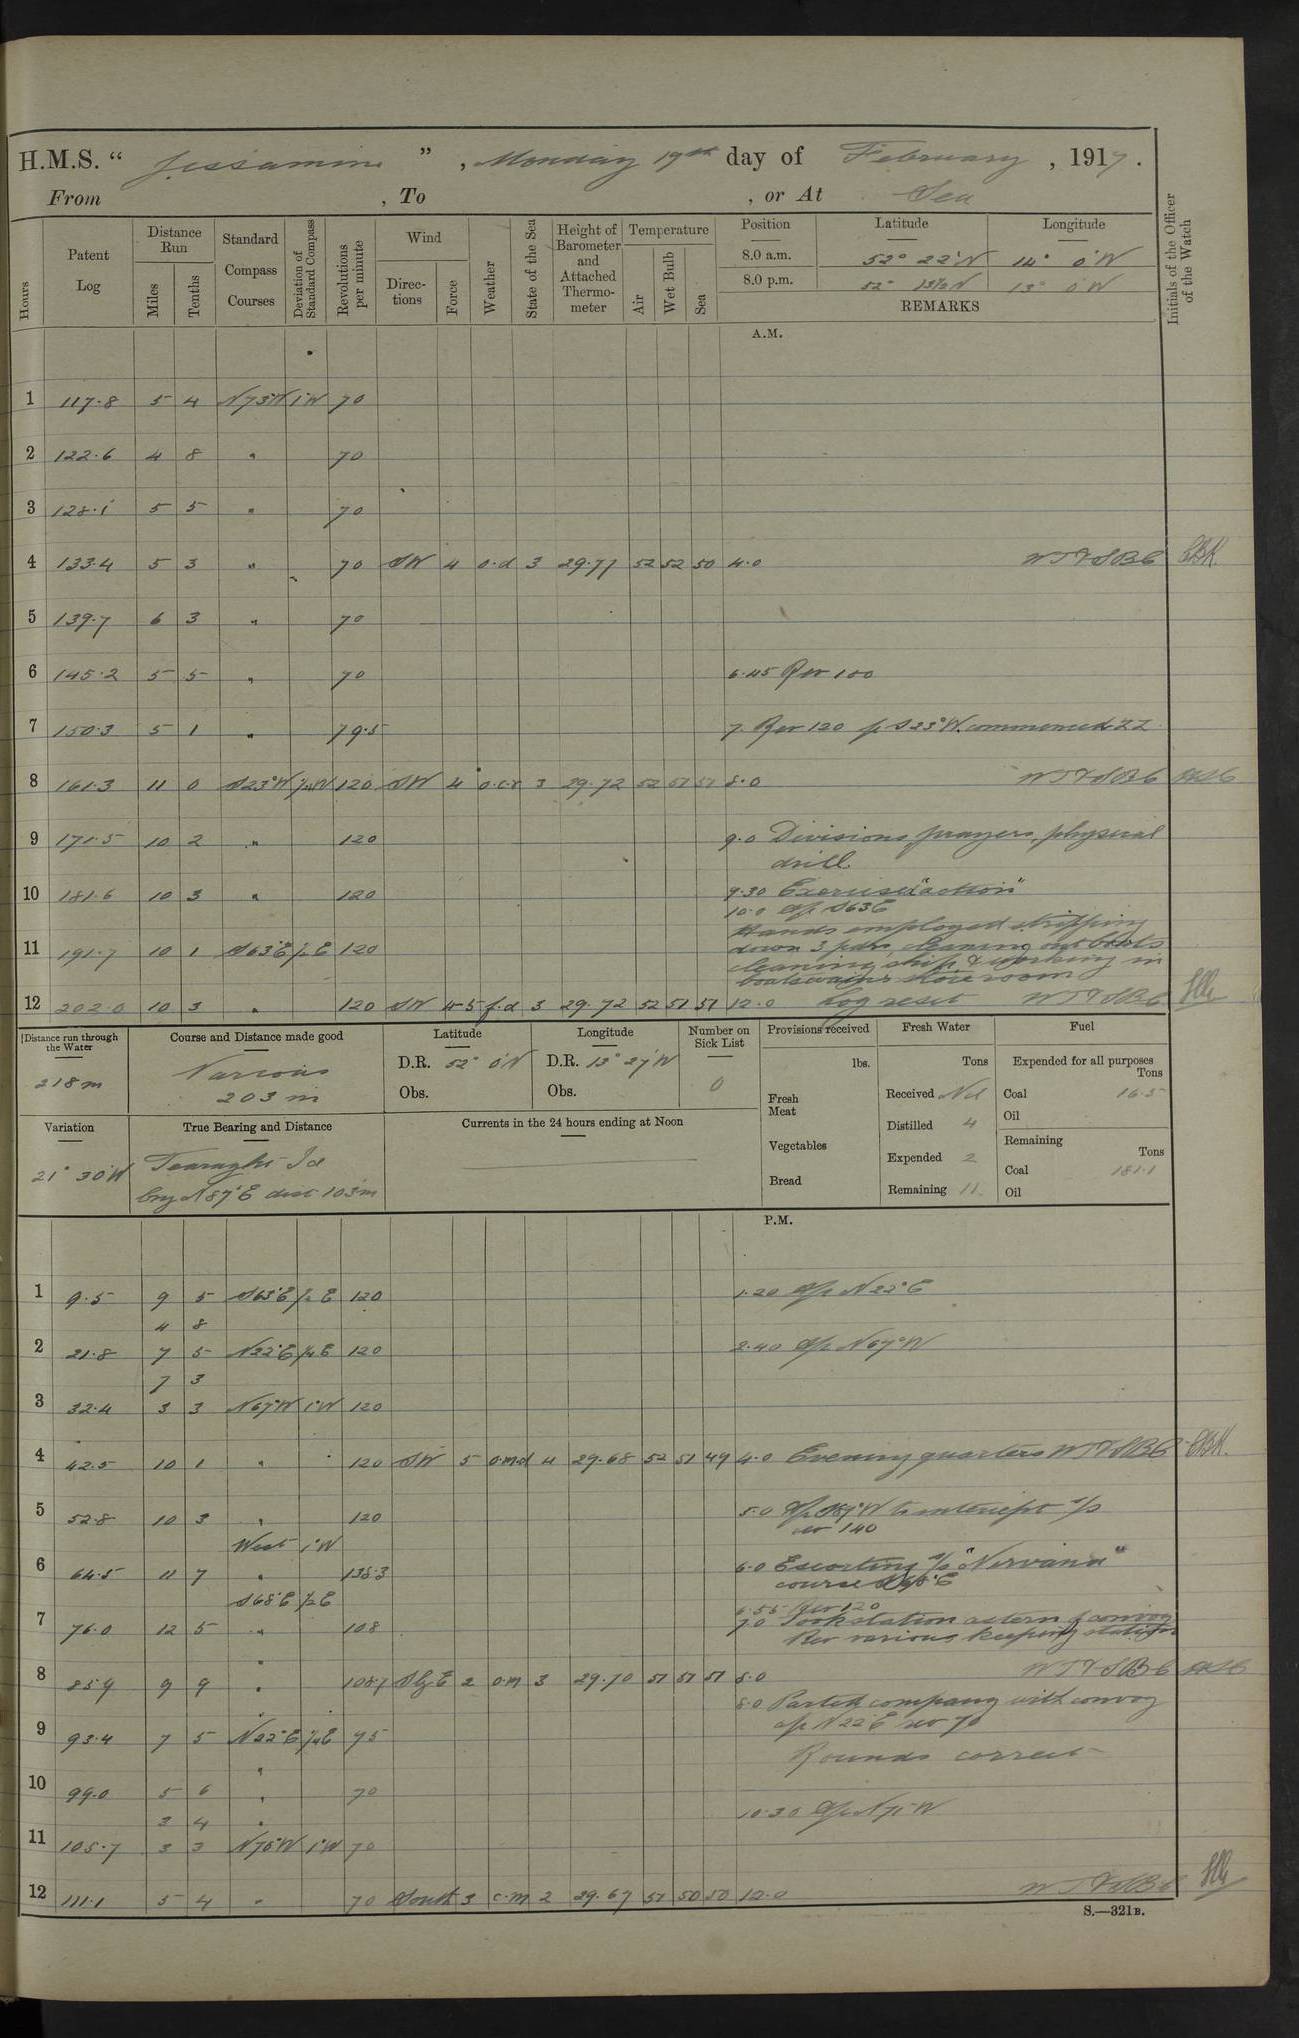 H.M.S. “ Jessamine ” , Monday 19th day of February , 1917 .
From , To , or At Sea
Hours
Patent Log
Distance Run
Miles
Tenths
Standard Compass Courses
Deviation of Standard Compass
Revolutions per minute
Wind
Directions
Force
Weather
State of the Sea
Height of Barometer and Attached Thermometer
Temperature
Air
Wet Bulb
Sea
Position Latitude Longitude
8.0 a.m. 52° 22'N 14° 0'W
8.0 p.m. 52° 13½N 13° 0'W
REMARKS
Initials of the Officer of the Watch
A.M.
1 117.8 5 4 N73W 1°W 70
2 122.6 4 8 " 70
3 128.1 5 5 " 70
4 133.4 5 3 " 70 SW 4 o.d 3 29.77 52 52 50 4.0
5 139.7 6 3 " 70
6 145.2 5 5 " 70 6.45 Rev 100
7 150.3 5 1 " 79.5 7. Rev 120 S23°W. commenced ZZ
8 161.3 11 0 S23°W 120 SW 4 o.c.r 3 29.72 52 51 51 8.0
9 171.5 10 2 " 120 9.0 Divisions, prayers, physical
drill
10 181.6 10 3 " 120 9.30 Exercised "action"
10.0 a/c S63E
Hands employed stripping
11 191.7 10 1 S63°E 120 down 3 pdr, cleaning out boats
cleaning ship & working in
boatswain's store room
12 202.0 10 3 " 120 SW 4-5 f.d 3 29.72 52 51 51 12.0 Log reset
Distance run through the Water
218m
Course and Distance made good
Various
203 m
Latitude
D.R. 52° 0'N
Obs.
Longitude
D.R. 13° 27'W
Obs.
Number on Sick List
0
Provisions received
lbs.
Fresh Meat
Vegetables
Bread
Fresh Water
Tons
Received Nil
Distilled 4
Expended 2
Remaining 11
Fuel
Expended for all purposes
Tons
Coal 16.5
Oil
Remaining
Tons
Coal 181.1
Oil
Variation
21° 30'W
True Bearing and Distance
Tearaght Id
brg N87°E dist 103m
Currents in the 24 hours ending at Noon
P.M.
1 9.5 9 5 S63°E 120 1.20 a/c N22°E
4 8
2 21.8 7 5 N22°E 120 2.40 a/c N67°W
7 3
3 32.4 3 3 N67W 1°W 120
4 42.5 10 1 " 120 SW 5 o.m.d 4 29.68 52 51 49 4.0 Evening quarters
5 52.8 10 3 " 120 5.0 a/c to intercept s/s
West 1°W rev 140
6 64.5 11 7 " 138.3 6.0 Escorting s/s "Nirvana"
S68°E course S68°E
6.55 Rev 120
7 76.0 12 5 " 108 7.0 Took station astern of convoy
Rev various keeping station
8 85.9 9 9 " 108.7 SbyE 2 o.m 3 29.70 51 51 51 8.0
8.0 Parted company with convoy
a/c N22°E rev 70
9 93.4 7 5 N22°E 75
Rounds correct
10 99.0 5 6 " 70
2 4 " 10.30 a/c N75W
11 105.7 3 3 N75°W 1°W 70
12 111.1 5 4 " 70 South 3 c.m 2 29.67 51 50 50 12.0
S.—321B.